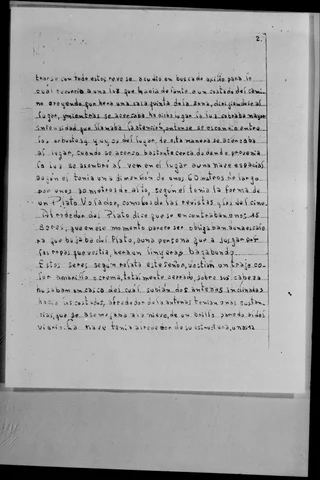 2.
trarse con todo esto, reve se acudio en busca de auxilio para lo
cual recurrio a una luz que hacia de junto a un costado del cami
no creyendo que hera una casa quinta de la zona, dirigiendose al
lugar, y mientras se acercaba ha dicho lugar la luz cobraba mayor
intensidad que llamaba la atencion, entonse se escondia entre
los arbustos y yuyos del lugar, de esta manera se acercaba
al lugar, cuando se acerco bastante cerca de donde provenia
la luz se asombro al ver en el lugar a una nave espacial
segun el tenia una dimension de unos 60 metros de largo
por unos 30 metros de alto, segun el tenia la forma de
un Plato Volador, como los de las revistas y los del cine.
Alrededor del Plato dice que se encontraban unos 15
Seres, que en ese momento parece ser obligaban a una escalo
ra que bajaba del Plato, a una persona que a juzgar por
las ropas que vestia, hera un linyera o bagabundo
Estos seres segun relato este señor, vestian un traje co
lor amarillo o crema, totalmente cerrado, sobre sus cabeza
husaban un casco del cual subian dos antenas inclinadas
hacia los costados, alrededor de la antenas tenian unas sustan
cias, que se asemejaba a la nieve, de un brillo parecido al del
vidrio. La nave tenia alrededor de su estructura, una